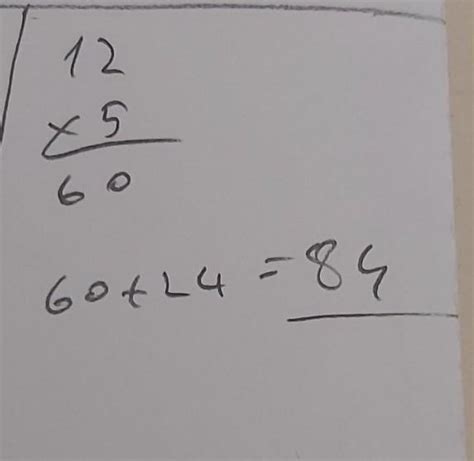 12
× 5
60
60+24 = 84